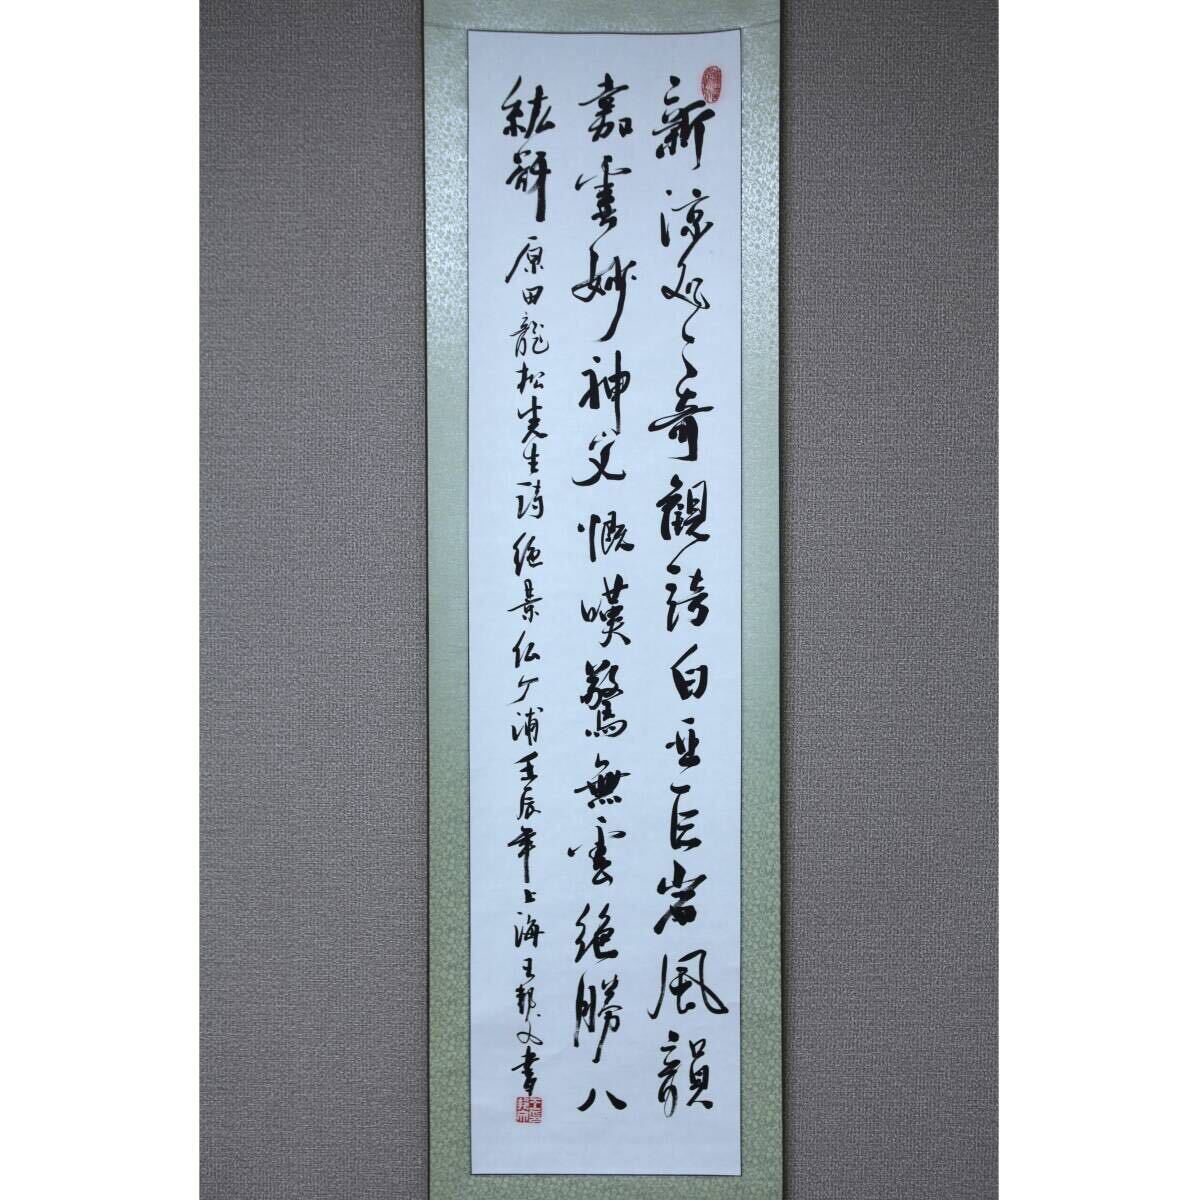 新涼処々奇觀誇白亜巨岩風韻
嘉霊妙神父慨嘆驚無雲絶勝八
紘谺 原田龍松先生詩 絶景仏ケ浦 壬辰年上海王文書